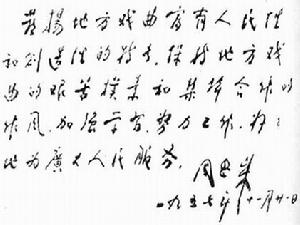 发扬地方戏曲富有人民性
和创造性的特长，保持地方戏
曲的艰苦朴素和集体合作的
作风，加强学习，努力工作，好好
地为广大人民服务。
周恩来
一九五七年十一月廿一日